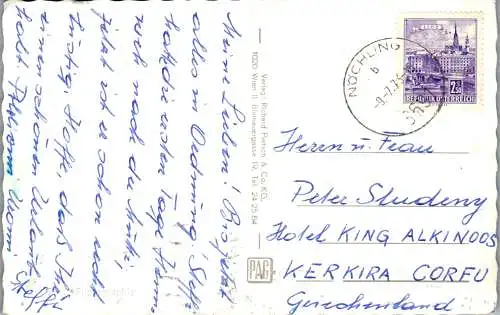 Meine Lieben! Bis jetzt
alles in Ordnung, Steffi
hatte ersten Tage Heim-
weh nach der Mutti,
jetzt ist es schon recht
lustig. Hoffe, dass Ihr
einen schönen Urlaub
habt.
Steffi
Verlag Richard Pietsch & Co. KG.,
1020 Wien II, Tel. 24 25 84
PAG
NÖCHLING
b
REPUBLIK ÖSTERREICH
Herrn u. Frau
Peter Studeny
Hotel KING ALKINOOS
KERKIRA CORFU
Griechenland